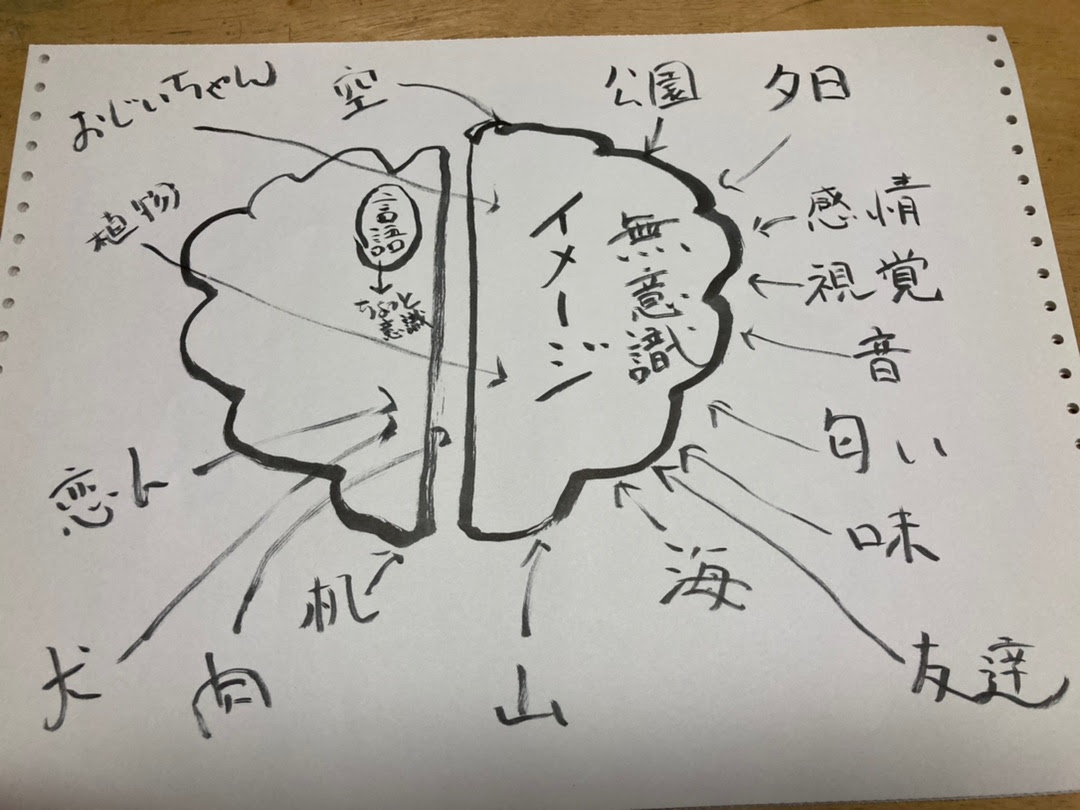 おじいちゃん
空
公園
夕日
植物
言語
ちょっと
意識
イメージ
無意識
感情
視覚
音
匂い
味
恋人
犬
肉
机
山
海
友達